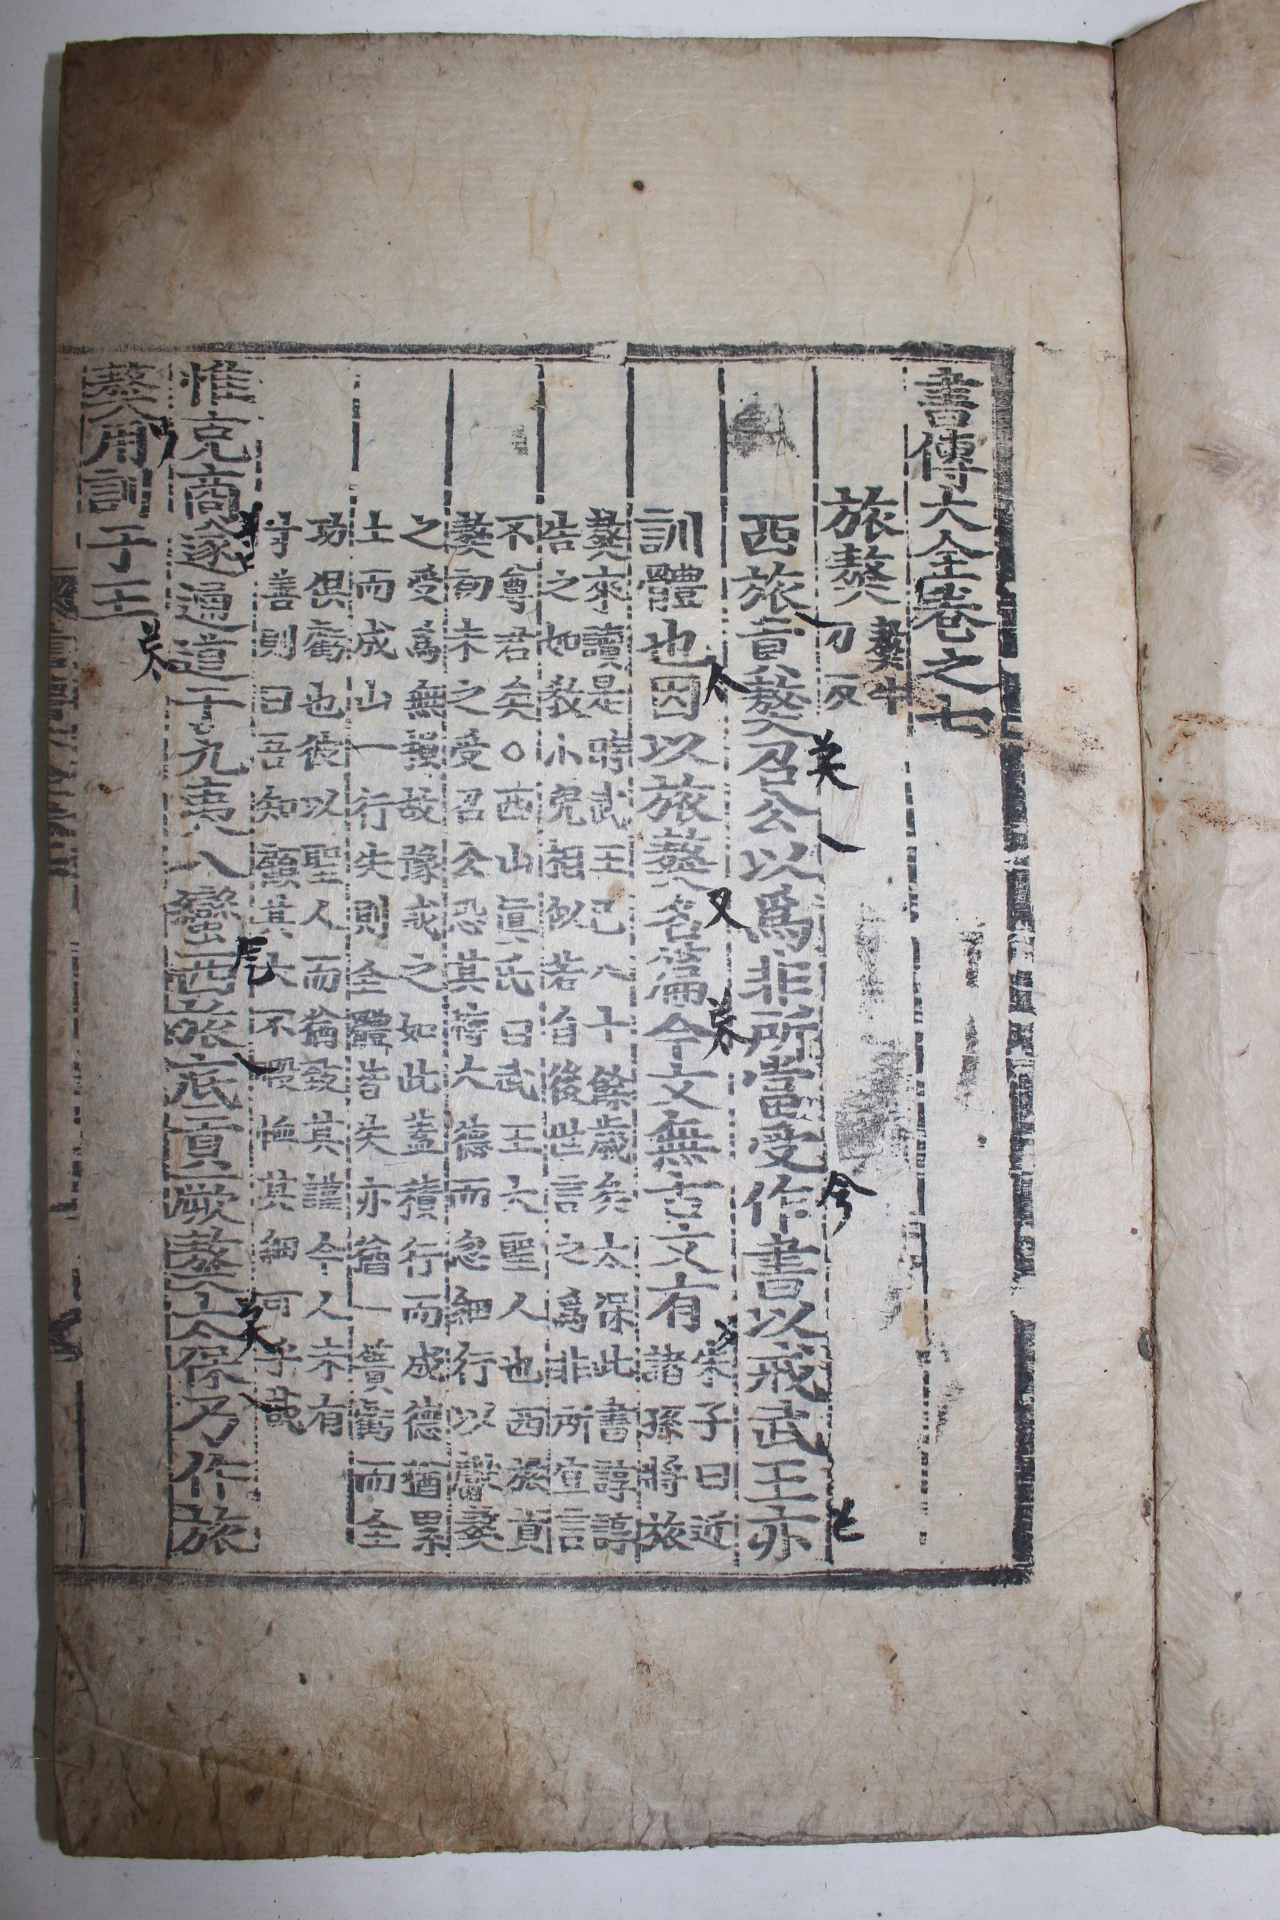 書傳大全卷之七
旅獒 獒牛刀反
西旅貢獒召公以爲非所當受作書以戒武王亦
訓體也因以旅獒名篇今文無古文有
朱子曰近
諸孫將旅
獒來讀是時武王已八十餘歲矣太保此書諄諄
告之如敎小兒相似若自後世言之爲非所宜言
不尊君矣○西山眞氏曰武王大聖人也西旅貢
獒初未之受召公恐其恃大德而忽細行以爲獒
之受爲無損故豫戒之如此蓋積行而成德猶累
土而成山一行失則全體皆失亦猶一簣虧而全
功俱虧也彼以聖人而猶致其謹今人未有
寸善則曰吾知顧其大不暇恤其細可乎哉
惟克商遂通道于九夷八蠻西旅底貢厥獒太保乃作旅
獒用訓于王